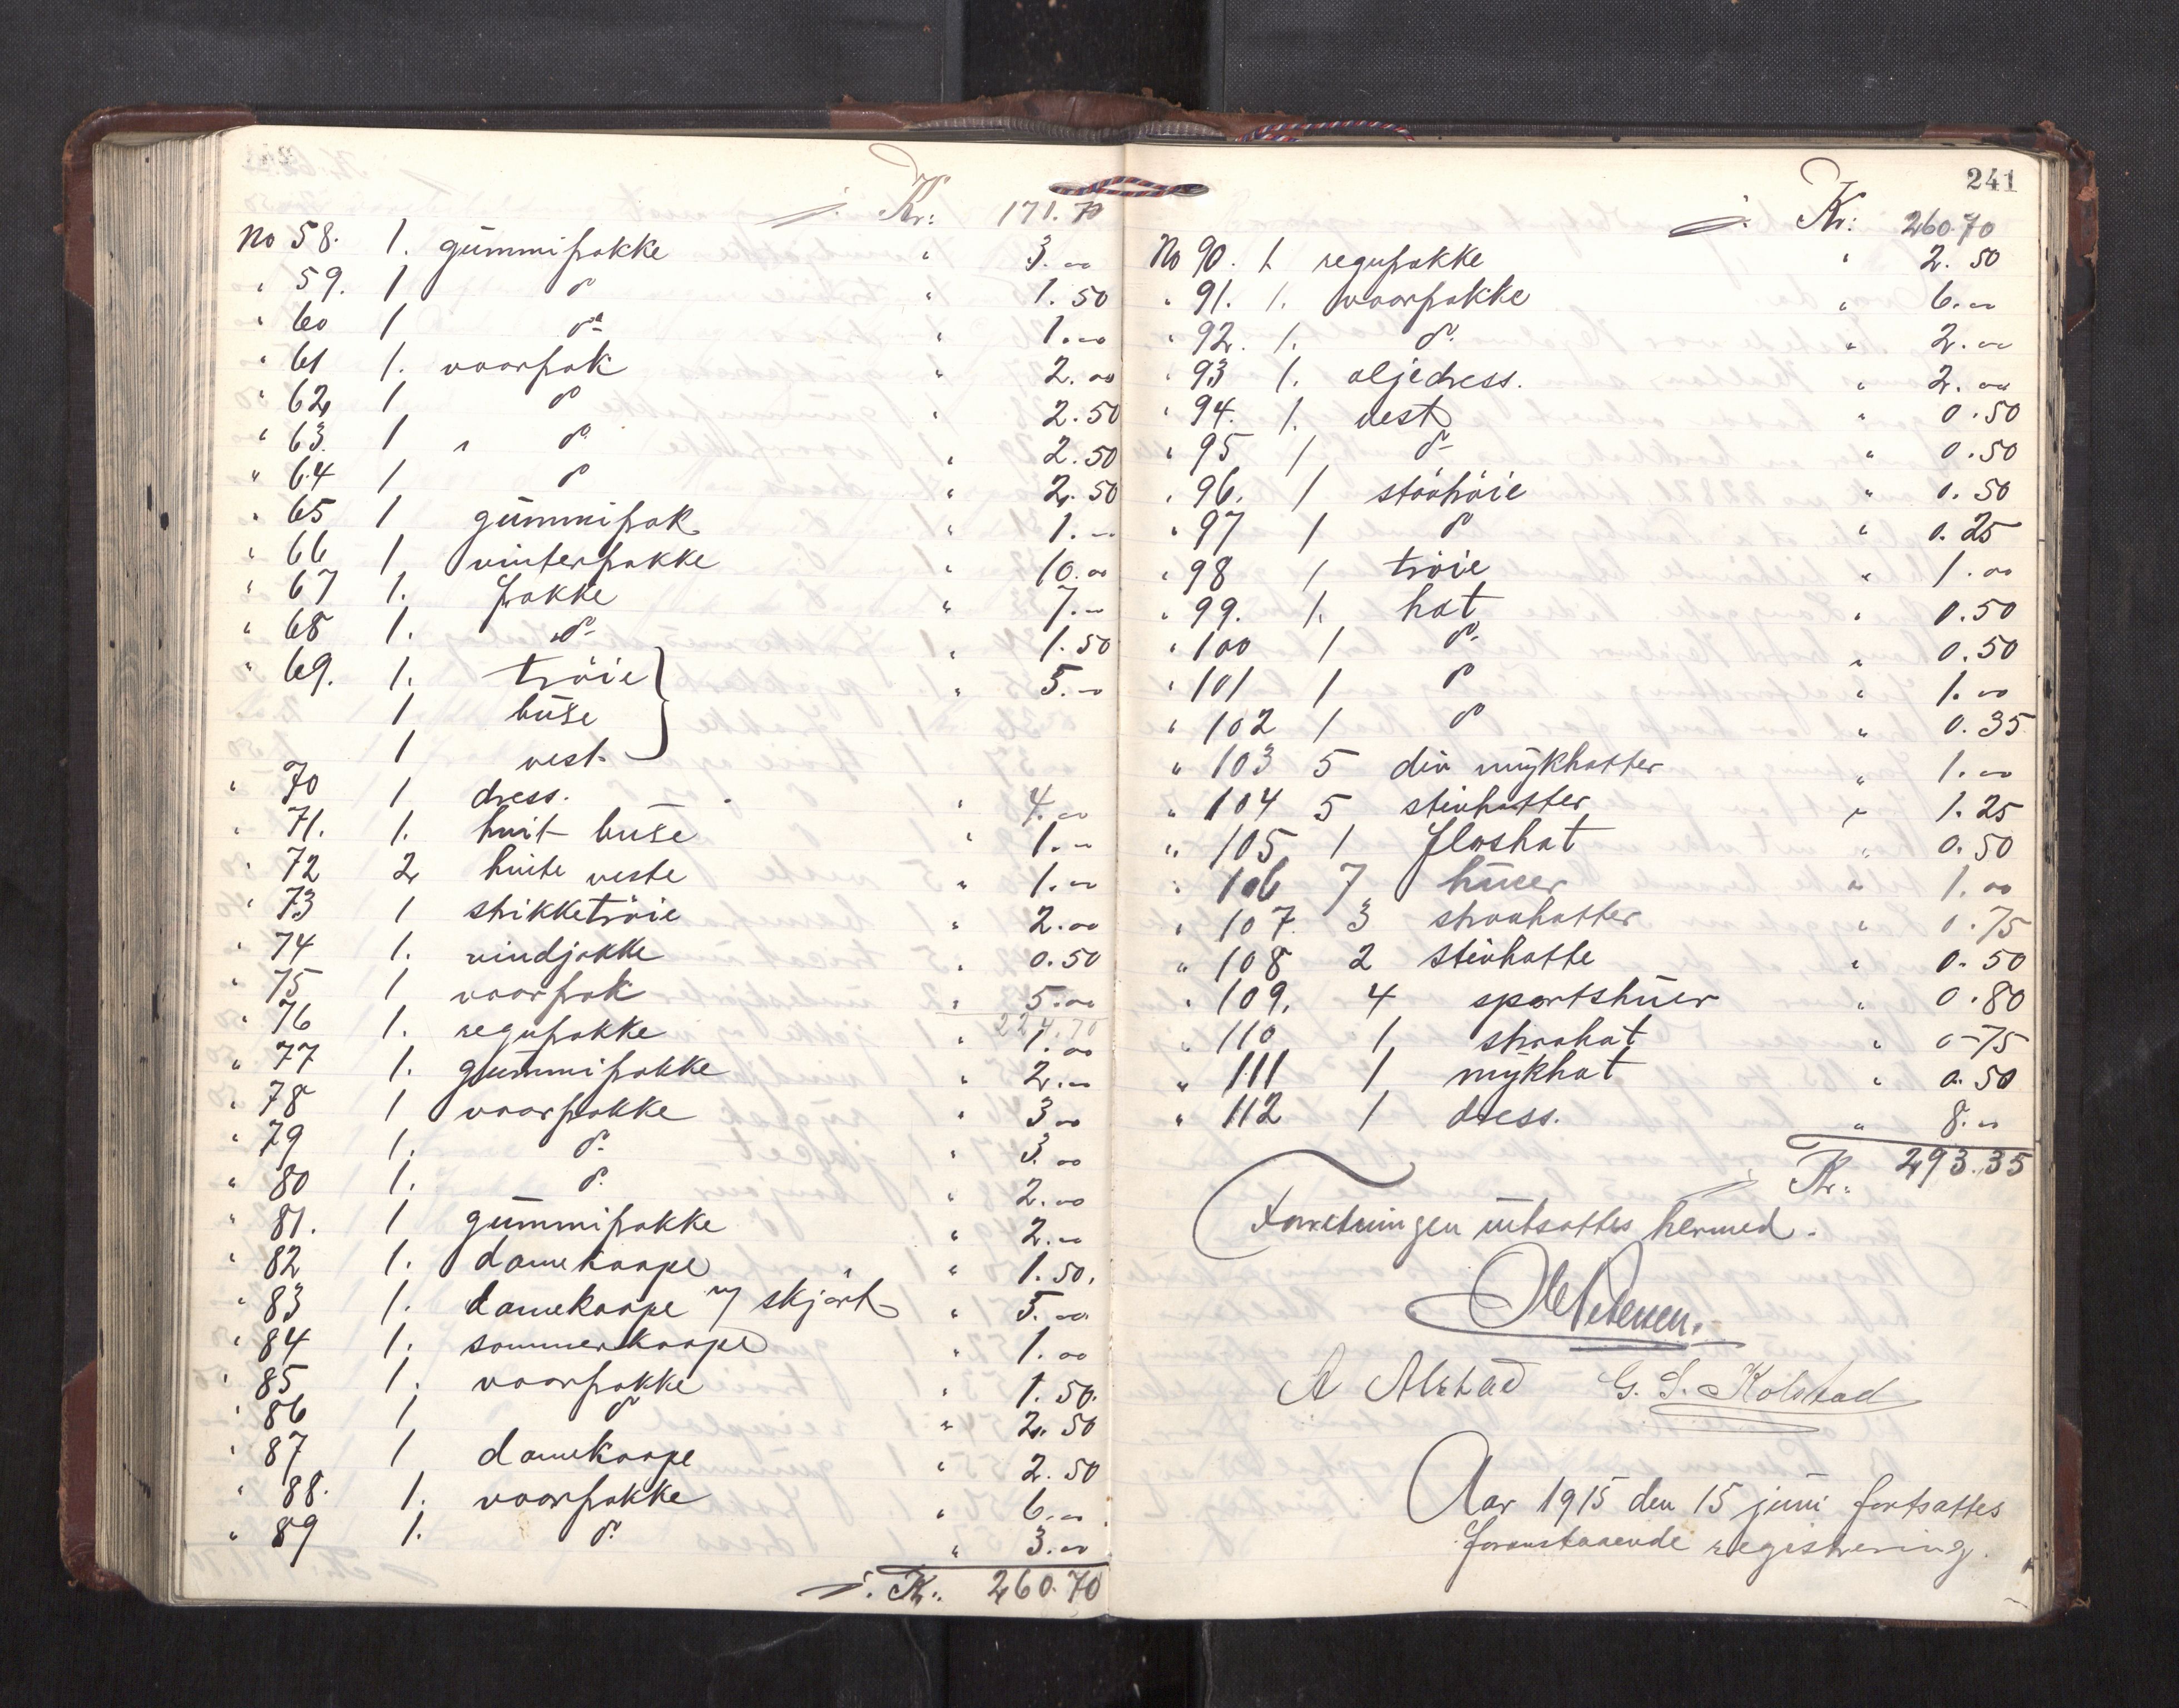 Kr: 171.70
No 58. 1. gummifrakke " 3.00
" 59. 1 do " 1.50
" 60 1 do " 1.00
" 61 1. vaarfrak " 2.00
" 62 1 do " 2.50
" 63. 1 " do " 2.50
" 64 1 do " 2.50
" 65 1 gummifrak " 1.00
" 66 1 vinterfrakke " 10.00
" 67 1. frakke " 7.00
" 68 1. do " 1.50
" 69. 1. trøie } " 5.00
1 buxe
1 vest.
" 70 1 dress. " 4.00
" 71. 1. hvit buxe " 1.00
" 72 2 hvite veste " 1.00
" 73 1 strikketrøie " 2.00
" 74 1. vindjakke " 0.50
" 75 1 vaarfrak " 5.00
224.70
" 76 1. regnfrakke " 1.00
" 77 1. gummifrakke " 2.00
" 78 1 vaarfrakke " 3.00
" 79 1. do " 3.00
" 80 1. do " 2.00
" 81. 1 gummifrakke " 2.00
" 82 1. damekaape " 1.50.
" 83 1. damekaape m/ skjørt " 5.00
" 84 1. sommerkaape " 1.00
" 85 1. vaarfrakke " 1.50.
" 86 1 do " 2.50
" 87 1 damekaape " 2.50
" 88. 1. vaarfrakke " 6.00
" 89 1. do " 3.00
Kr. 260.70
241
Kr: 260.70
No 90. 1. regnfrakke " 2.50
" 91. 1. vaarfrakke " 6.00
" 92. 1. do " 2.00
" 93 1. oljedress. " 2.00
" 94. 1. vest " 0.50
" 95 1 do " 0.50
" 96. 1 støvtrøie " 0.50
" 97 1 do " 0.25
" 98 1 trøie " 1.00
" 99. 1. hat " 0.50
" 100 1 do " 0.50
" 101 1 do " 1.00
" 102 1 do " 0.35
" 103 5 div mykhatter " 1.00
" 104 5 stivhatter " 1.25
" 105 1 floshat " 0.50
" 106 7 huer " 1.00
" 107. 3 straahatter " 0.75
" 108 2 stivhatte " 0.50
" 109. 4 sportshuer " 0.80
" 110 1 straahat " 0-75
" 111 1 mykhat " 0.50
" 112 1 dress. " 8.00
Kr: 293.35
Forretningen utsattes hermed.
Pedersen.
A Alstad G. S. Kolstad
Aar 1915 den 15 juni fortsattes
foranstaaende registrering.